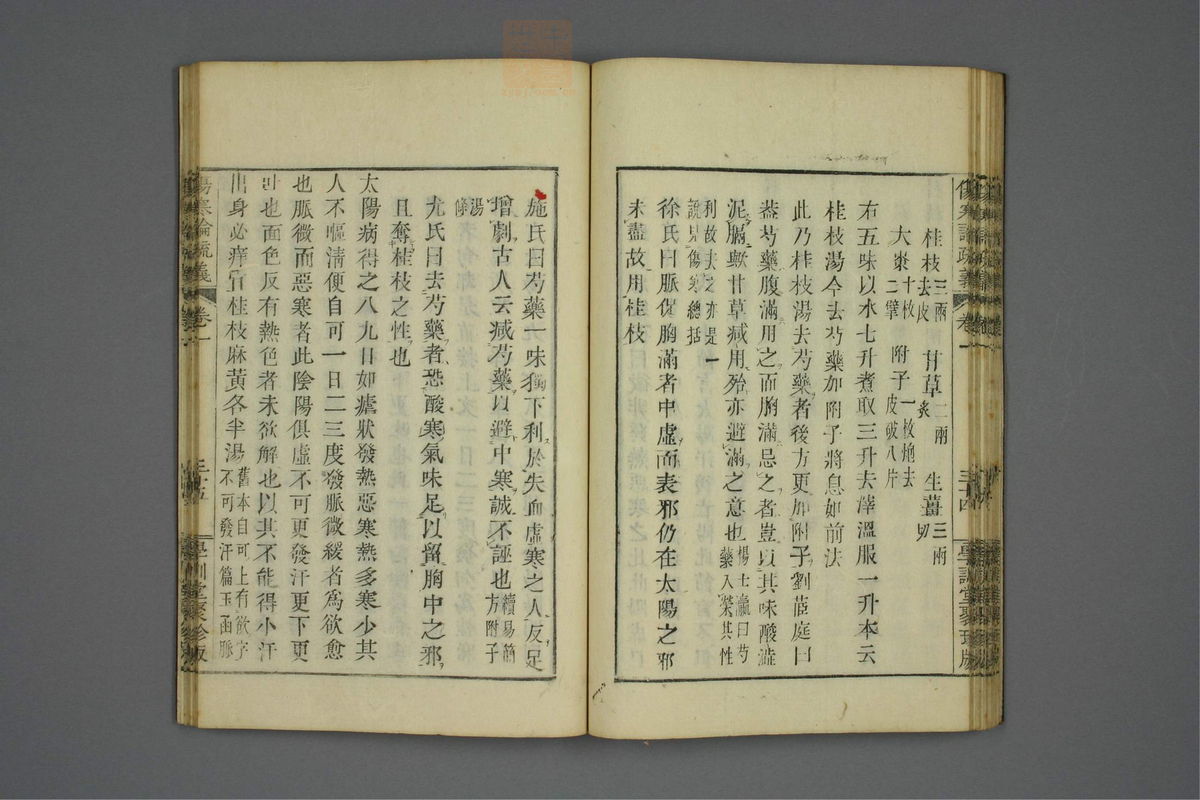 傷寒論疏義 卷一 三十四 學訓堂聚珍版
桂枝三兩去皮 甘草二兩炙 生薑三兩切
大棗十枚擘 附子一枚炮去皮破八片
右五味以水七升煮取三升去滓溫服一升本云
桂枝湯今去芍藥加附子將息如前法
此乃桂枝湯去芍藥者後方更加附子劉茝庭曰
葢芍藥腹滿用之而胸滿忌之者豈以其味酸澁
泥膈歟甘草減用殆亦避滿之意也楊士瀛曰芍藥入榮其性
利故去之亦是一說見傷寒總括
徐氏曰脈促胸滿者中虛而表邪仍在太陽之邪
未盡故用桂枝
施氏曰芍藥一味獨下利於失血虛寒之人反足
增劇古人云減芍藥以避中寒誠不誣也續易簡方附子
湯條
尤氏曰去芍藥者恐酸寒氣味足以留胸中之邪
且奪桂枝之性也
太陽病得之八九日如瘧狀發熱惡寒熱多寒少其
人不嘔清便自可一日二三度發脈微緩者爲欲愈
也脈微而惡寒者此陰陽俱虛不可更發汗更下更
吐也面色反有熱色者未欲解也以其不能得小汗
出身必痒宜桂枝麻黃各半湯舊本自可上有欲字不可發汗篇玉函脈
傷寒論疏義 卷一 三十五 學訓堂聚珍版